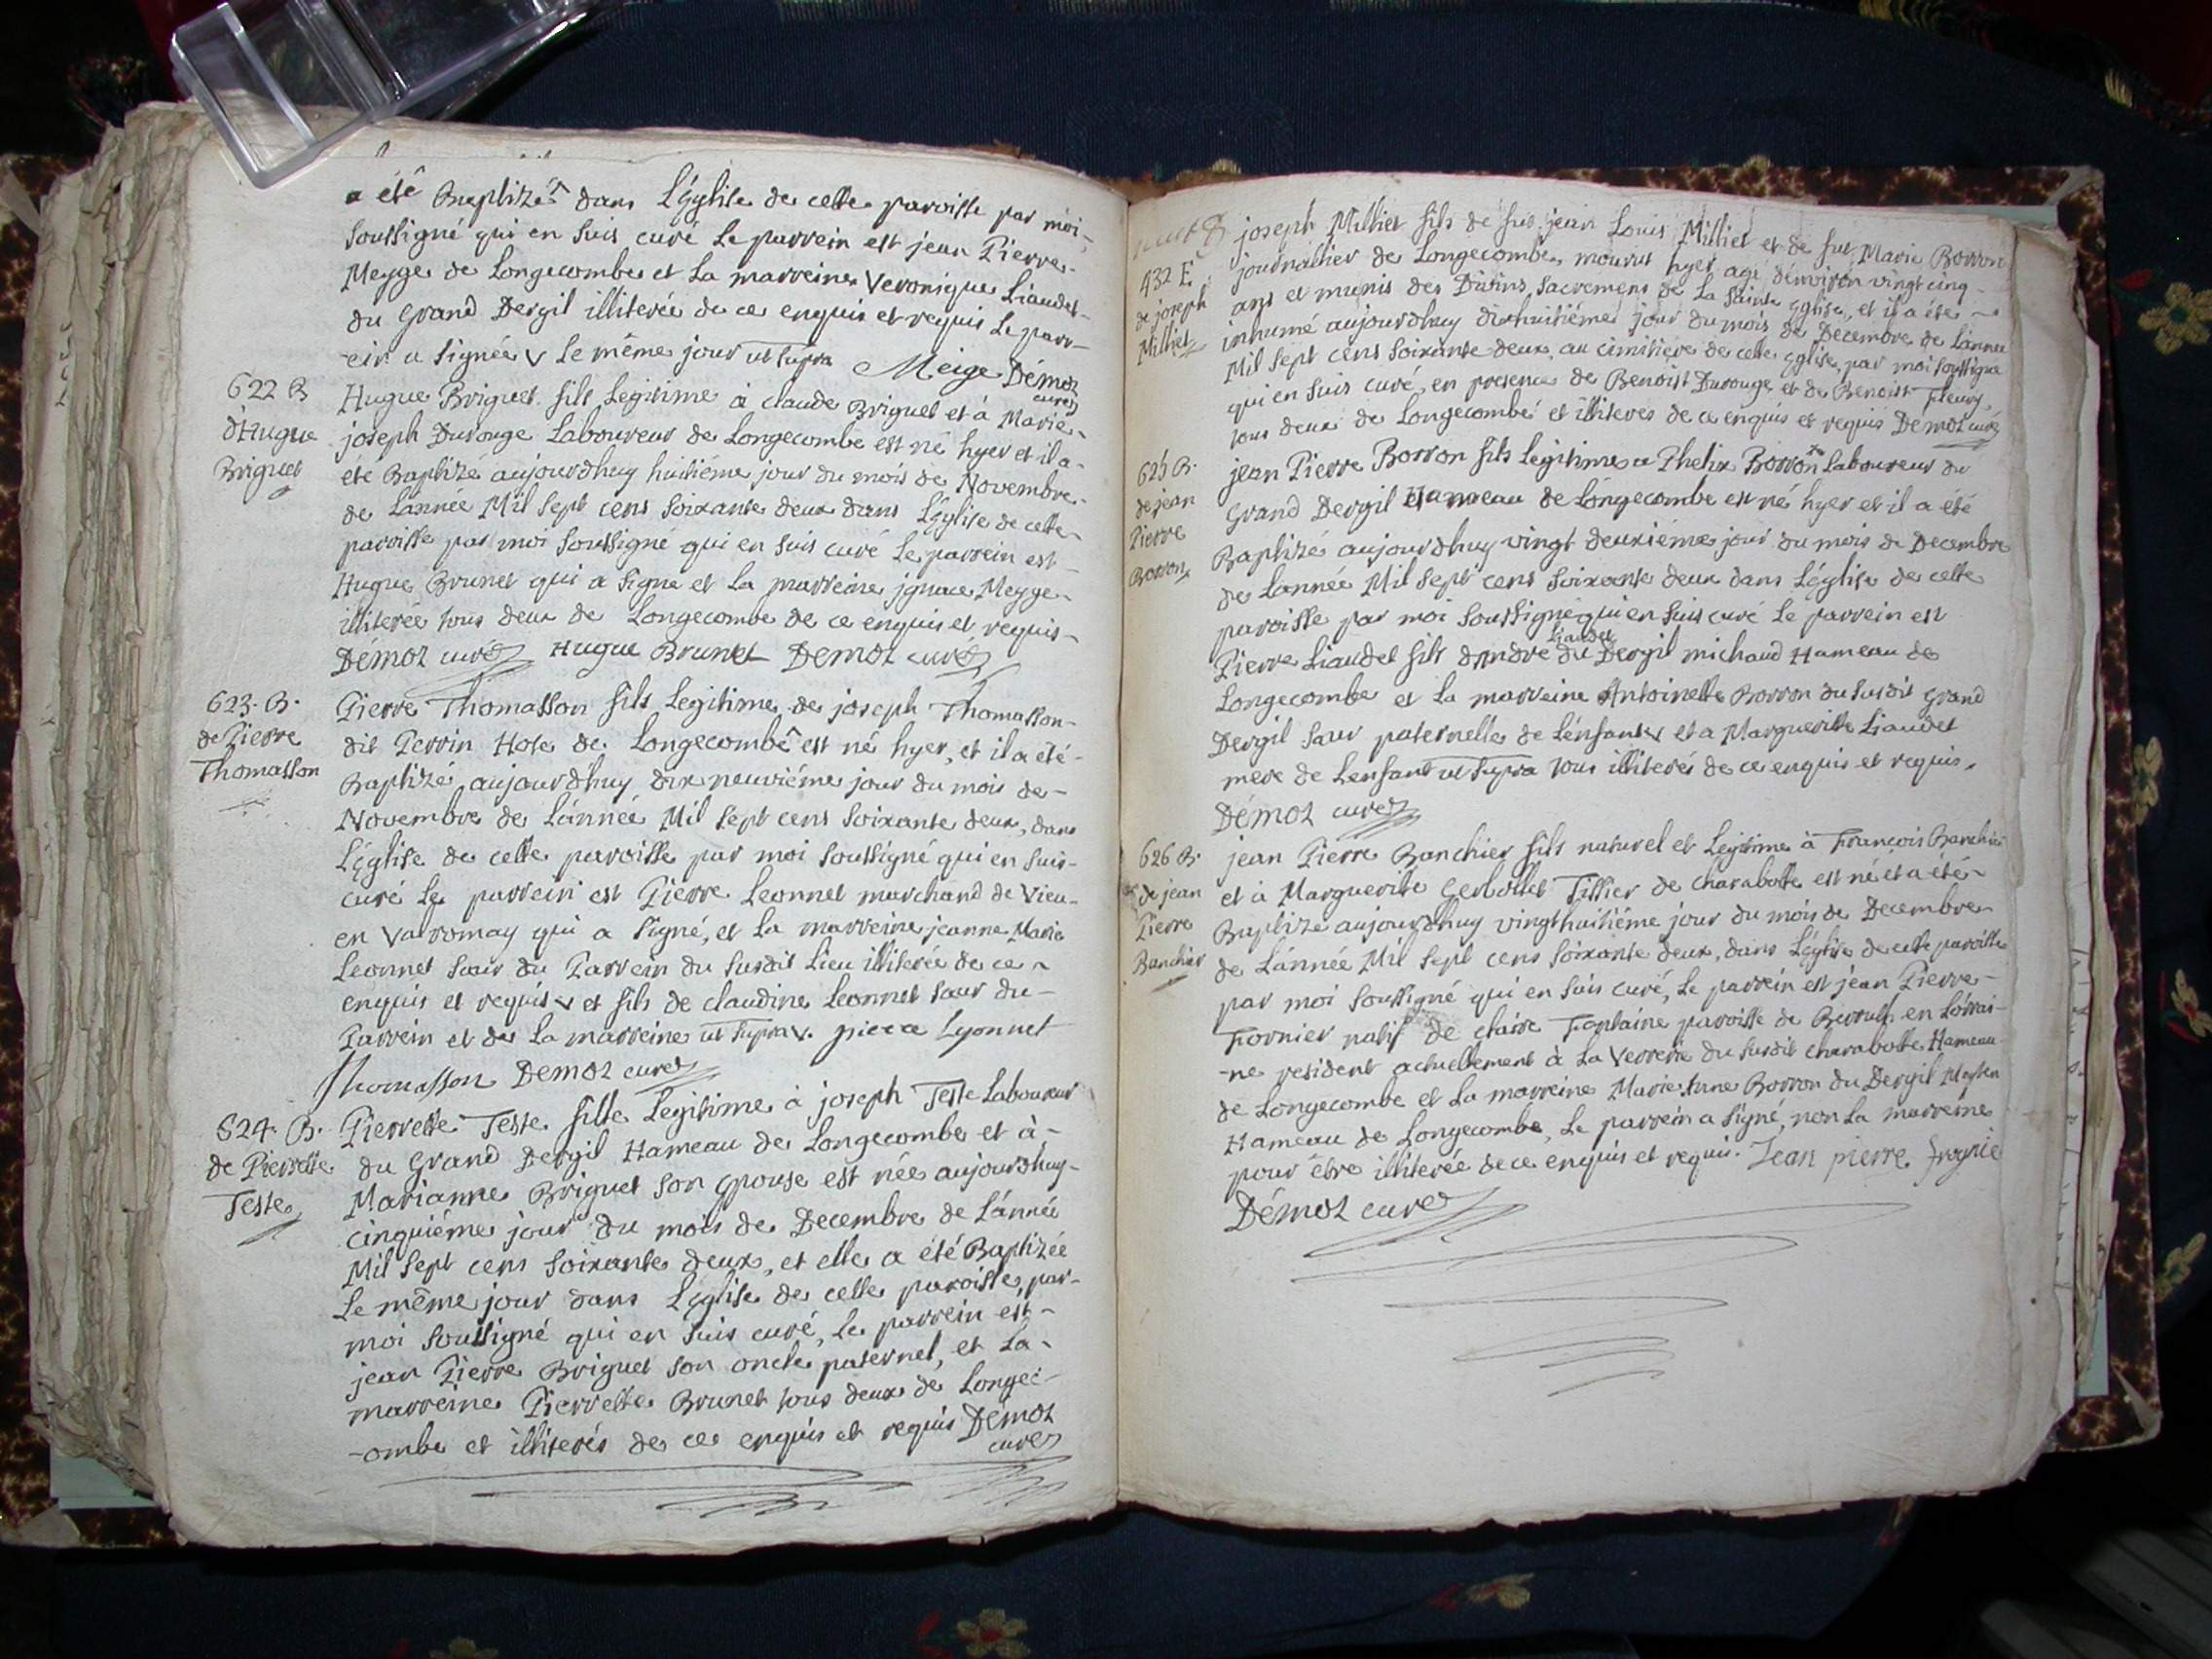 a été Baptizé dans L'église de cette paroisse par moi
soussigné qui en suis curé Le parrein est jean Pierre
Meyge de Longecombe et La marreine Veronique Liaudet
du Grand Dergil illiterée de ce enquis et requis Le parr-
-ein a signée v Le même jour ut supra Meige Démoz
curé
622 B
d'Hugue
Briguet
Hugue Briguet fils Legitime à claude Briguet et à Marie
joseph Durouge Laboureur de Longecombe est né hyer et il a
été Baptizé aujourdhuy huitiéme jour du mois de Novembre
de L'année Mil sept cens soixante deux dans L'église de cette
paroisse par moi soussigné qui en suis curé Le parrein est
Hugue Brunet qui a signé et La marreine jgnace Meyge
illiterée tous deux de Longecombe de ce enquis et requis
Démoz curé Hugue Brunet Démoz curé
623. B.
de Pierre
Thomasson
Pierre Thomasson fils Legitime de joseph Thomasson
dit Perrin Hote de Longecombe est né hyer, et il a été
Baptizé aujourdhuy dix neuviéme jour du mois de
Novembre de L'année Mil sept cens soixante deux, dans
L'église de cette paroisse par moi soussigné qui en suis
curé Le parrein est Pierre Leonnet marchand de Vieu
en Valromay qui a signé, et La marreine jeanne Marie
Leonnet sœur du Parrein du susdit Lieu illiterée de ce
enquis et requis v et fils de claudine Leonnet sœur du
Parrein et de La marreine ut supra v. pierre Lyonnet
Thomasson Démoz curé
624. B.
de Pierrette
Teste
Pierrette Teste fille Legitime à joseph Teste Laboureur
du Grand Dergil Hameau de Longecombe et à
Marianne Briguet son epouse est née aujourdhuy
cinquiéme jour du mois de Decembre de L'année
Mil sept cens soixante deux, et elle a été Baptizée
Le même jour dans L'église de cette paroisse, par
moi soussigné qui en suis curé, Le parrein est
jean Pierre Briguet son oncle paternel, et La
marreine Pierrette Brunet tous deux de Longec-
-ombe et illiterés de ce enquis et requis Démoz
curé
432 E
de joseph
Milliet
joseph Milliet fils de fut jean Louis Milliet et de fut Marie Borron
journallier de Longecombe, mourut hyer agé d'environ vingt cinq
ans et munis des Divins Sacremens de La Sainte église, et il a été
inhumé aujourdhuy dixhuitiéme jour du mois de Decembre de L'année
Mil sept cens soixante deux, au cimitiere de cette église, par moi soussigné
qui en suis curé, en presence de Benoist Durouge et de Benoist Fleury,
tous deux de Longecombe et illiterés de ce enquis et requis Démoz curé
625 B.
de jean
Pierre
Borron
jean Pierre Borron fils Legitime a Phelix Borron Laboureur du
Grand Dergil Hameau de Longecombe est né hyer et il a été
Baptizé aujourdhuy vingt deuxiéme jour du mois de Decembre
de L'année Mil sept cens soixante deux dans L'église de cette
paroisse par moi soussigné qui en suis curé Le parrein est
Liaudet
Pierre Liaudet fils d'andré du Dergil michaud Hameau de
Longecombe et La marreine Antoinette Borron du susdit Grand
Dergil sœur paternelle de L'enfant v et a Marguerite Liaudet
mere de L'enfant ut supra tous illiterés de ce enquis et requis.
Démoz curé
626 B.
de jean
Pierre
Banchier
jean Pierre Banchier fils naturel et Legitime à François Banchier
et à Marguerite Tissier de charabotte est né et a été
Baptizé aujourdhuy vingt huitiéme jour du mois de Decembre
de L'année Mil sept cens soixante deux, dans L'église de cette paroisse
par moi soussigné qui en suis curé, Le parrein est jean Pierre
Fornier natif de claire Fontaine paroisse de en Lorrai-
-ne resident actuellement à La Verrerie du susdit charabotte Hameau
de Longecombe et La marreine Marie Anne Borron du Dergil
Hameau de Longecombe, Le parrein a signé, non La marreine
pour être illiterée de ce enquis et requis. Jean pierre
Démoz curé